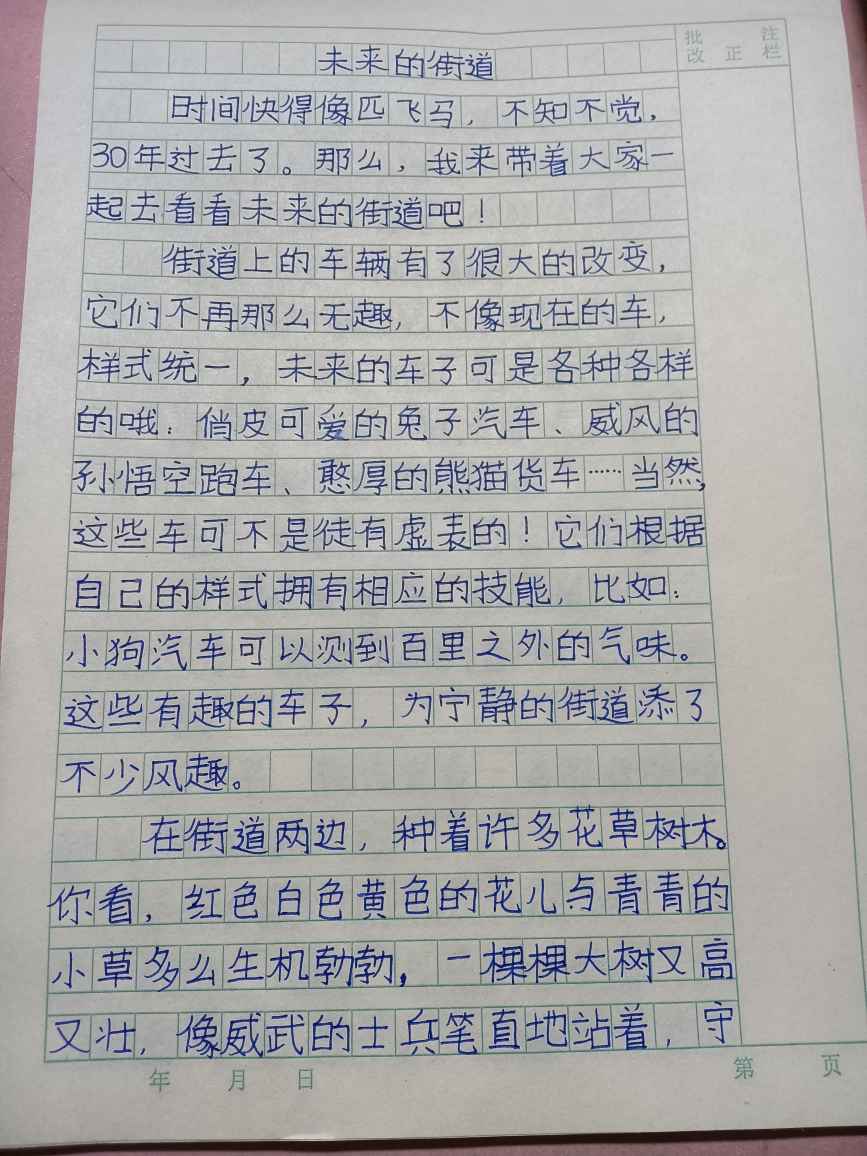 批注
改正栏
未来的街道
时间快得像匹飞马，不知不觉，
30年过去了。那么，我来带着大家一
起去看看未来的街道吧！
街道上的车辆有了很大的改变，
它们不再那么无趣，不像现在的车，
样式统一，未来的车子可是各种各样
的哦：俏皮可爱的兔子汽车、威风的
孙悟空跑车、憨厚的熊猫货车……当然，
这些车可不是徒有虚表的！它们根据
自己的样式拥有相应的技能，比如：
小狗汽车可以测到百里之外的气味。
这些有趣的车子，为宁静的街道添了
不少风趣。
在街道两边，种着许多花草树木。
你看，红色白色黄色的花儿与青青的
小草多么生机勃勃，一棵棵大树又高
又壮，像威武的士兵笔直地站着，守
年 月 日
第 页